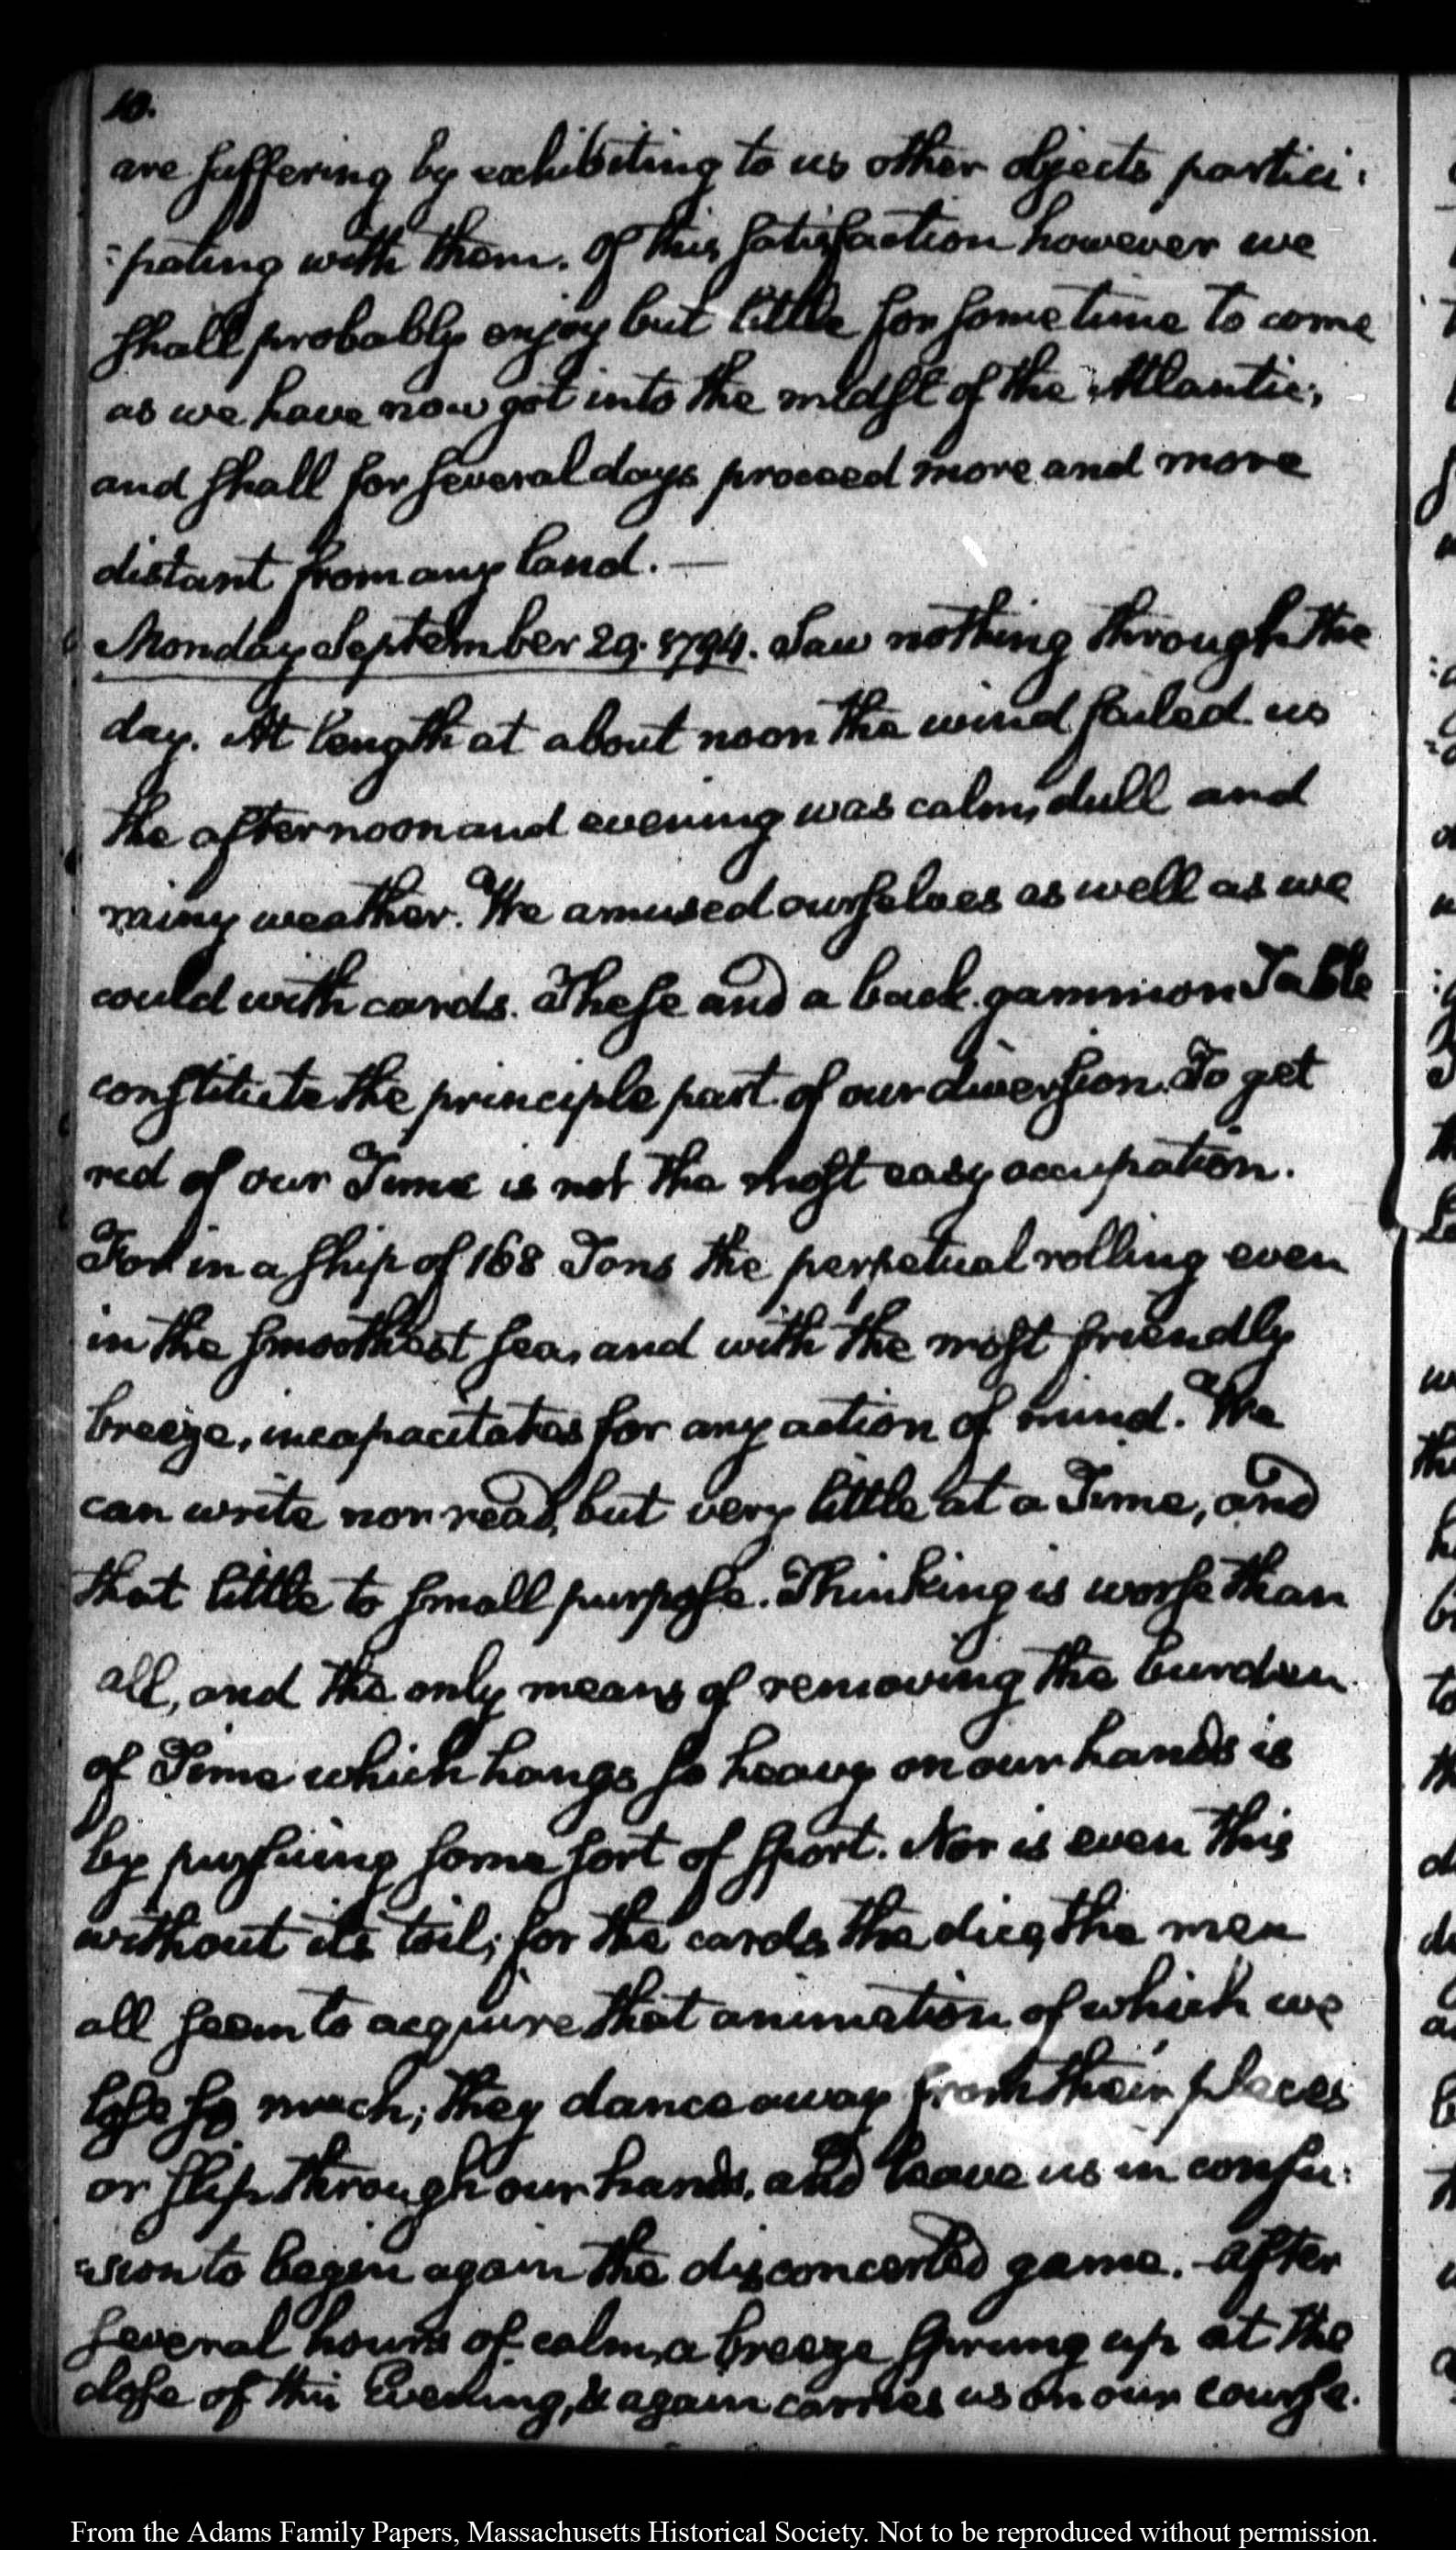 10.
are suffering by exhibiting to us other objects partici:
:pating with them. Of this satisfaction however we
shall probably enjoy but little for some time to come
as we have now got into the midst of the Atlantic,
and shall for several days proceed more and more
distant from any land. —
Monday September 29. 1794. Saw nothing through the
day. At length at about noon the wind failed us
the afternoon and evening was calm, dull and
rainy weather. We amused ourselves as well as we
could with cards. These and a back gammon Table
constitute the principle part of our diversion. To get
rid of our Time is not the most easy occupation.
For in a ship of 168 Tons the perpetual rolling even
in the smoothest sea, and with the most friendly
breeze, incapacitates for any action of mind. We
can write nor read, but very little at a Time, and
that little to small purpose. Thinking is worse than
all, and the only means of removing the burden
of Time which hangs so heavy on our hands is
by pursuing some sort of sport. Nor is even this
without its toil; for the cards, the dice, the men
all seem to acquire that animation of which we
lose so much; they dance away from their places
or slip through our hands, and leave us in confu:
:sion to begin again the disconcerted game. After
several hours of calm, a breeze sprung up at the
close of this Evening, & again carries us on our course.
From the Adams Family Papers, Massachusetts Historical Society. Not to be reproduced without permission.